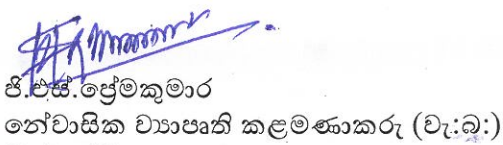 ජි.එස්.ප්‍රේමකුමාර
නේවාසික ව්‍යාපෘති කළමණාකරු (වැ:බ:)